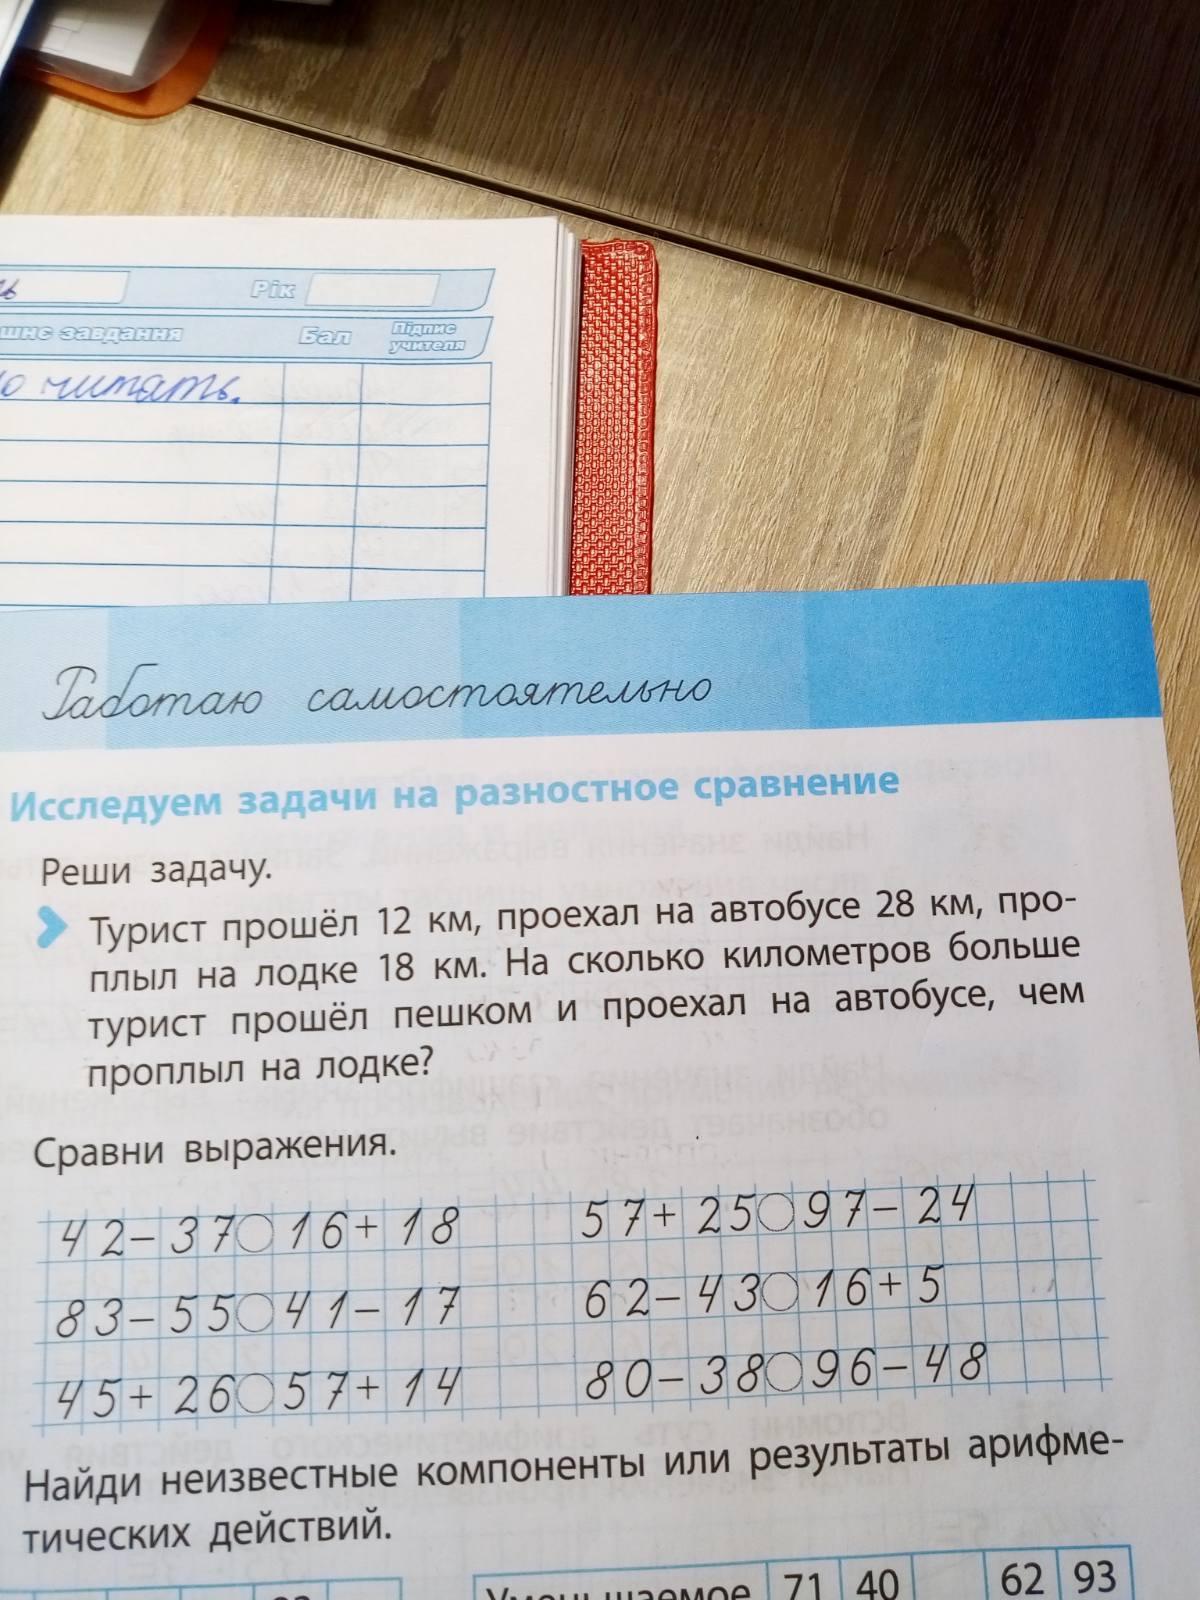 Рік
завдання Бал Підпис учителя
читать.
Работаю самостоятельно
Исследуем задачи на разностное сравнение
Реши задачу.
Турист прошёл 12 км, проехал на автобусе 28 км, про-
плыл на лодке 18 км. На сколько километров больше
турист прошёл пешком и проехал на автобусе, чем
проплыл на лодке?
Сравни выражения.
42-37○16+18 57+25○97-24
83-55○41-17 62-43○16+5
45+26○57+14 80-38○96-48
Найди неизвестные компоненты или результаты арифме-
тических действий.
Уменьшаемое 71 40 62 93